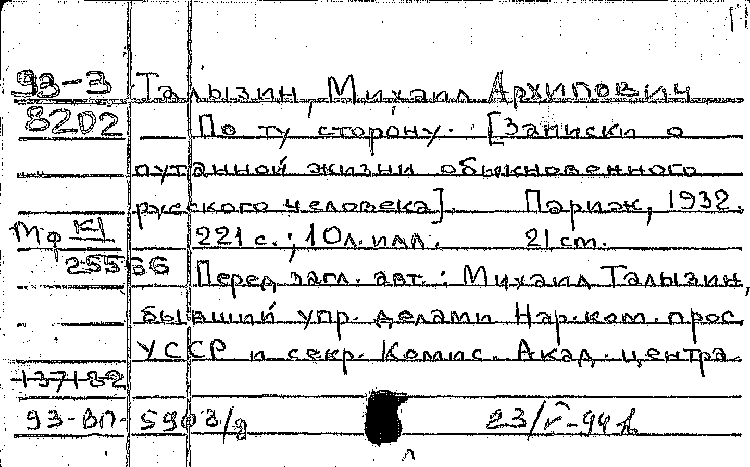 93-3 Талызин, Михаил Архипович
8202 По ту сторону. [Записки о
путанной жизни обыкновенного
русского человека]. Париж, 1932.
Мф К1 221 с.; 10 л. илл. 21 см.
25566 Перед загл. авт.: Михаил Талызин,
бывший упр. делами Нар.ком.прос
УССР и секр. Комис. Акад. центра.
137182
93-ВП-5903/